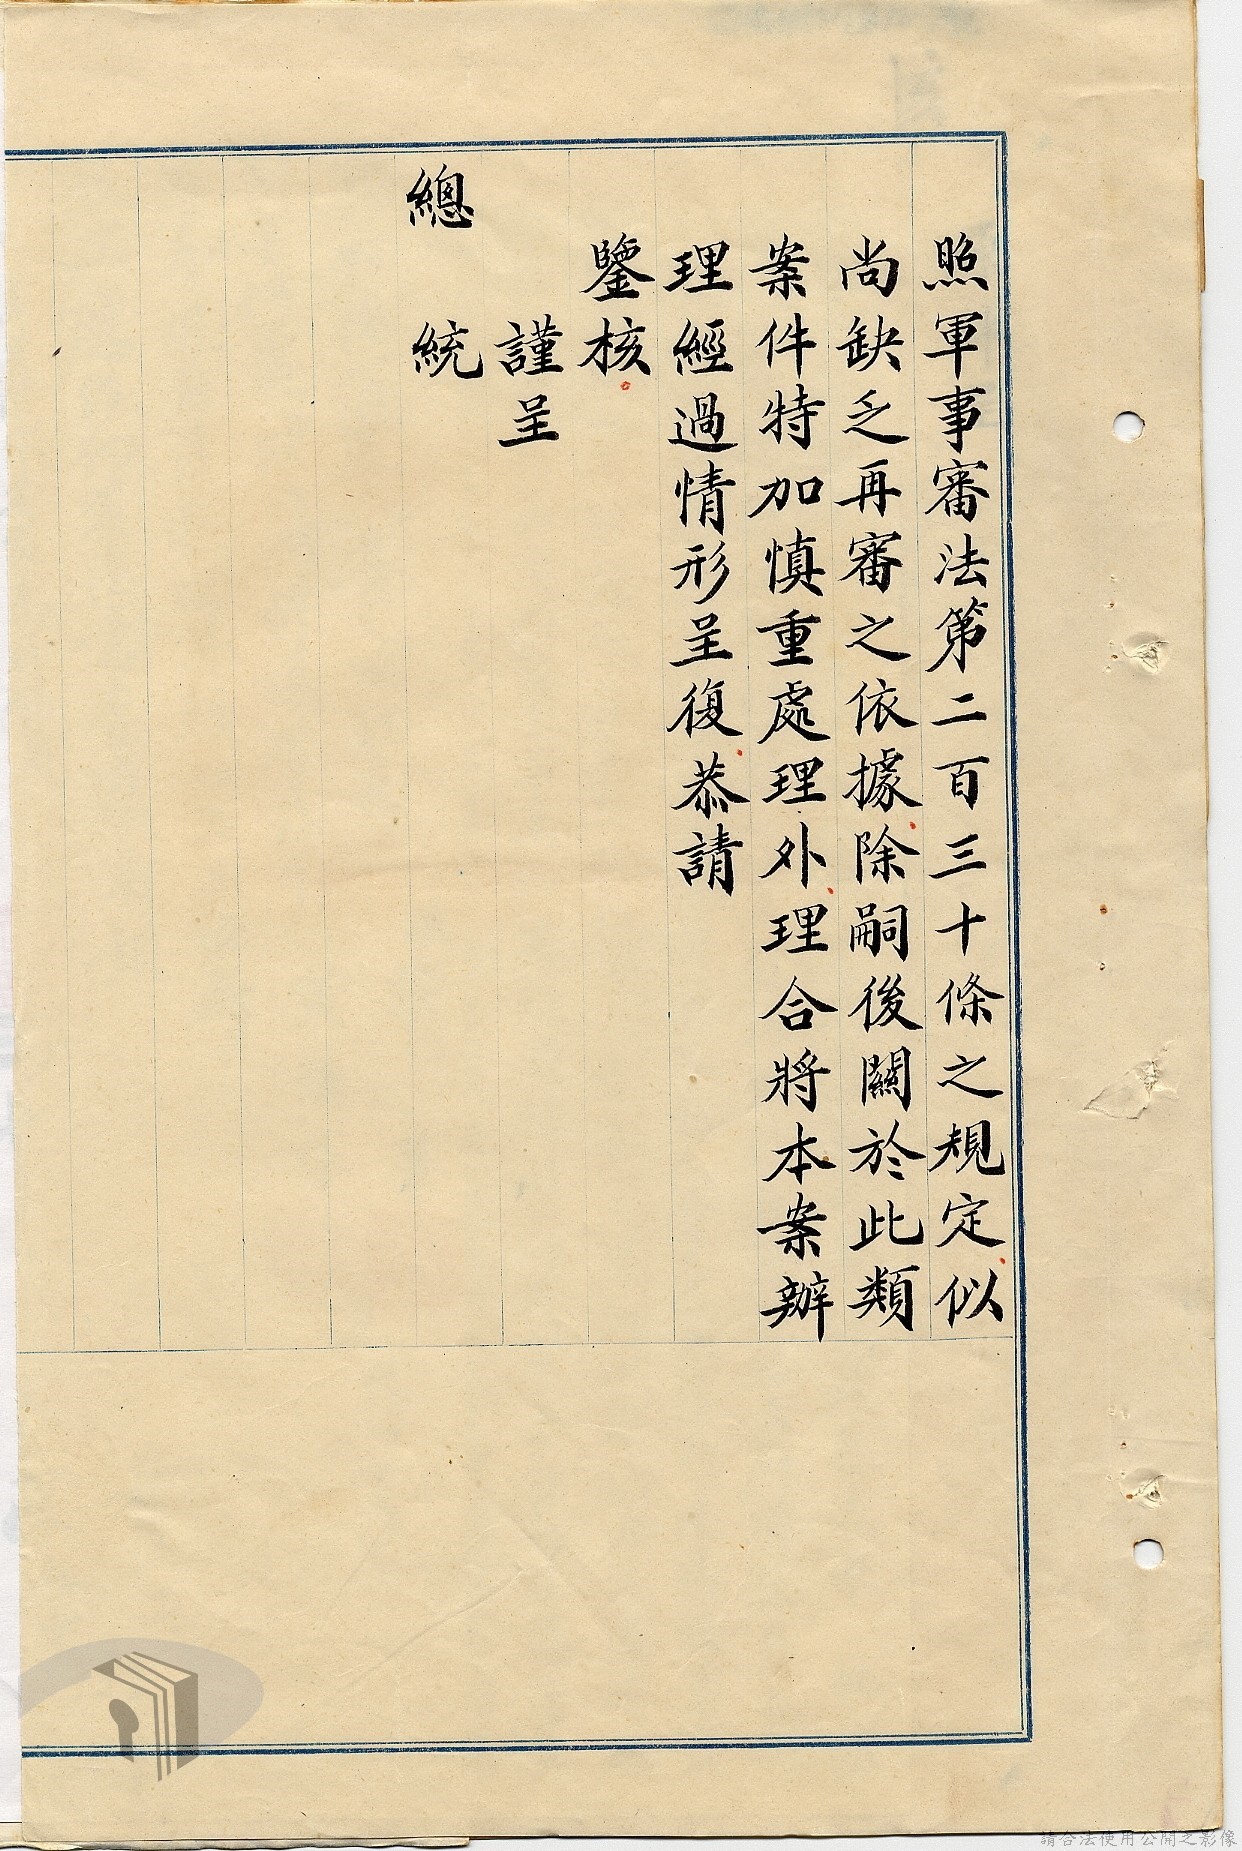 照軍事審法第二百三十條之規定似
尚缺乏再審之依據除嗣後關於此類
案件特加慎重處理外理合將本案辦
理經過情形呈復恭請
鑒核
謹呈
總統
請合法使用公開之影像